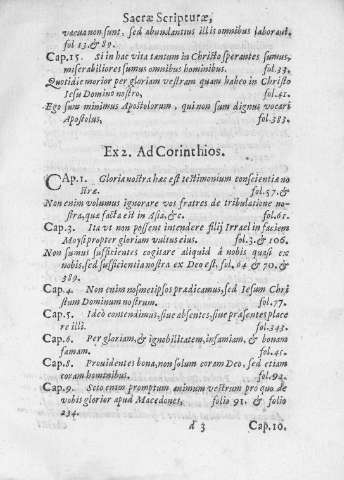 Sacræ Scripturæ,
vacua non sunt, sed abundantius illis omnibus laboraui,
fol 13. & 89.
Cap. 15. Si in hac vita tantum in Christo sperantes sumus,
miserabiliores sumus omnibus hominibus. fol. 33.
Quotidie morior per gloriam vestram quam habeo in Christo
Iesu Domino nostro, fol. 41.
Ego sum minimus Apostolorum, qui non sum dignus vocari
Apostolus, fol. 383.
Ex 2. Ad Corinthios.
CAp. 1. Gloria nostra hæc est testimonium conscientiæ no
stræ. fol. 57. &
Non enim volumus ignorare vos fratres de tribulatione no-
stra, quæ facta est in Asia, &c. fol. 61.
Cap. 3. Ita vt non possent intendere filij Israel in faciem
Moysi propter gloriam vultus eius. fol. 3. & 106.
Non sumus sufficientes cogitare aliquid à nobis quasi ex
nobis, sed sufficientia nostra ex Deo est, fol. 64 & 70. &
389.
Cap. 4. Non enim nosmetipsos prædicamus, sed Iesum Chri
stum Dominum nostrum. fol. 77.
Cap. 5. Ideò contendimus, siue absentes, siue præsentes place
re illi. fol. 343.
Cap. 6. Per gloriam, & ignobilitatem, infamiam, & bonam
famam. fol. 45.
Cap. 8. Prouidentes bona, non solum coram Deo, sed etiam
coram hominibus. fol. 92.
Cap. 9. Scio enim promptum animum vestrum pro quo de
vobis glorior apud Macedones, folio 91. & folio
234.
d 3 Cap. 10.